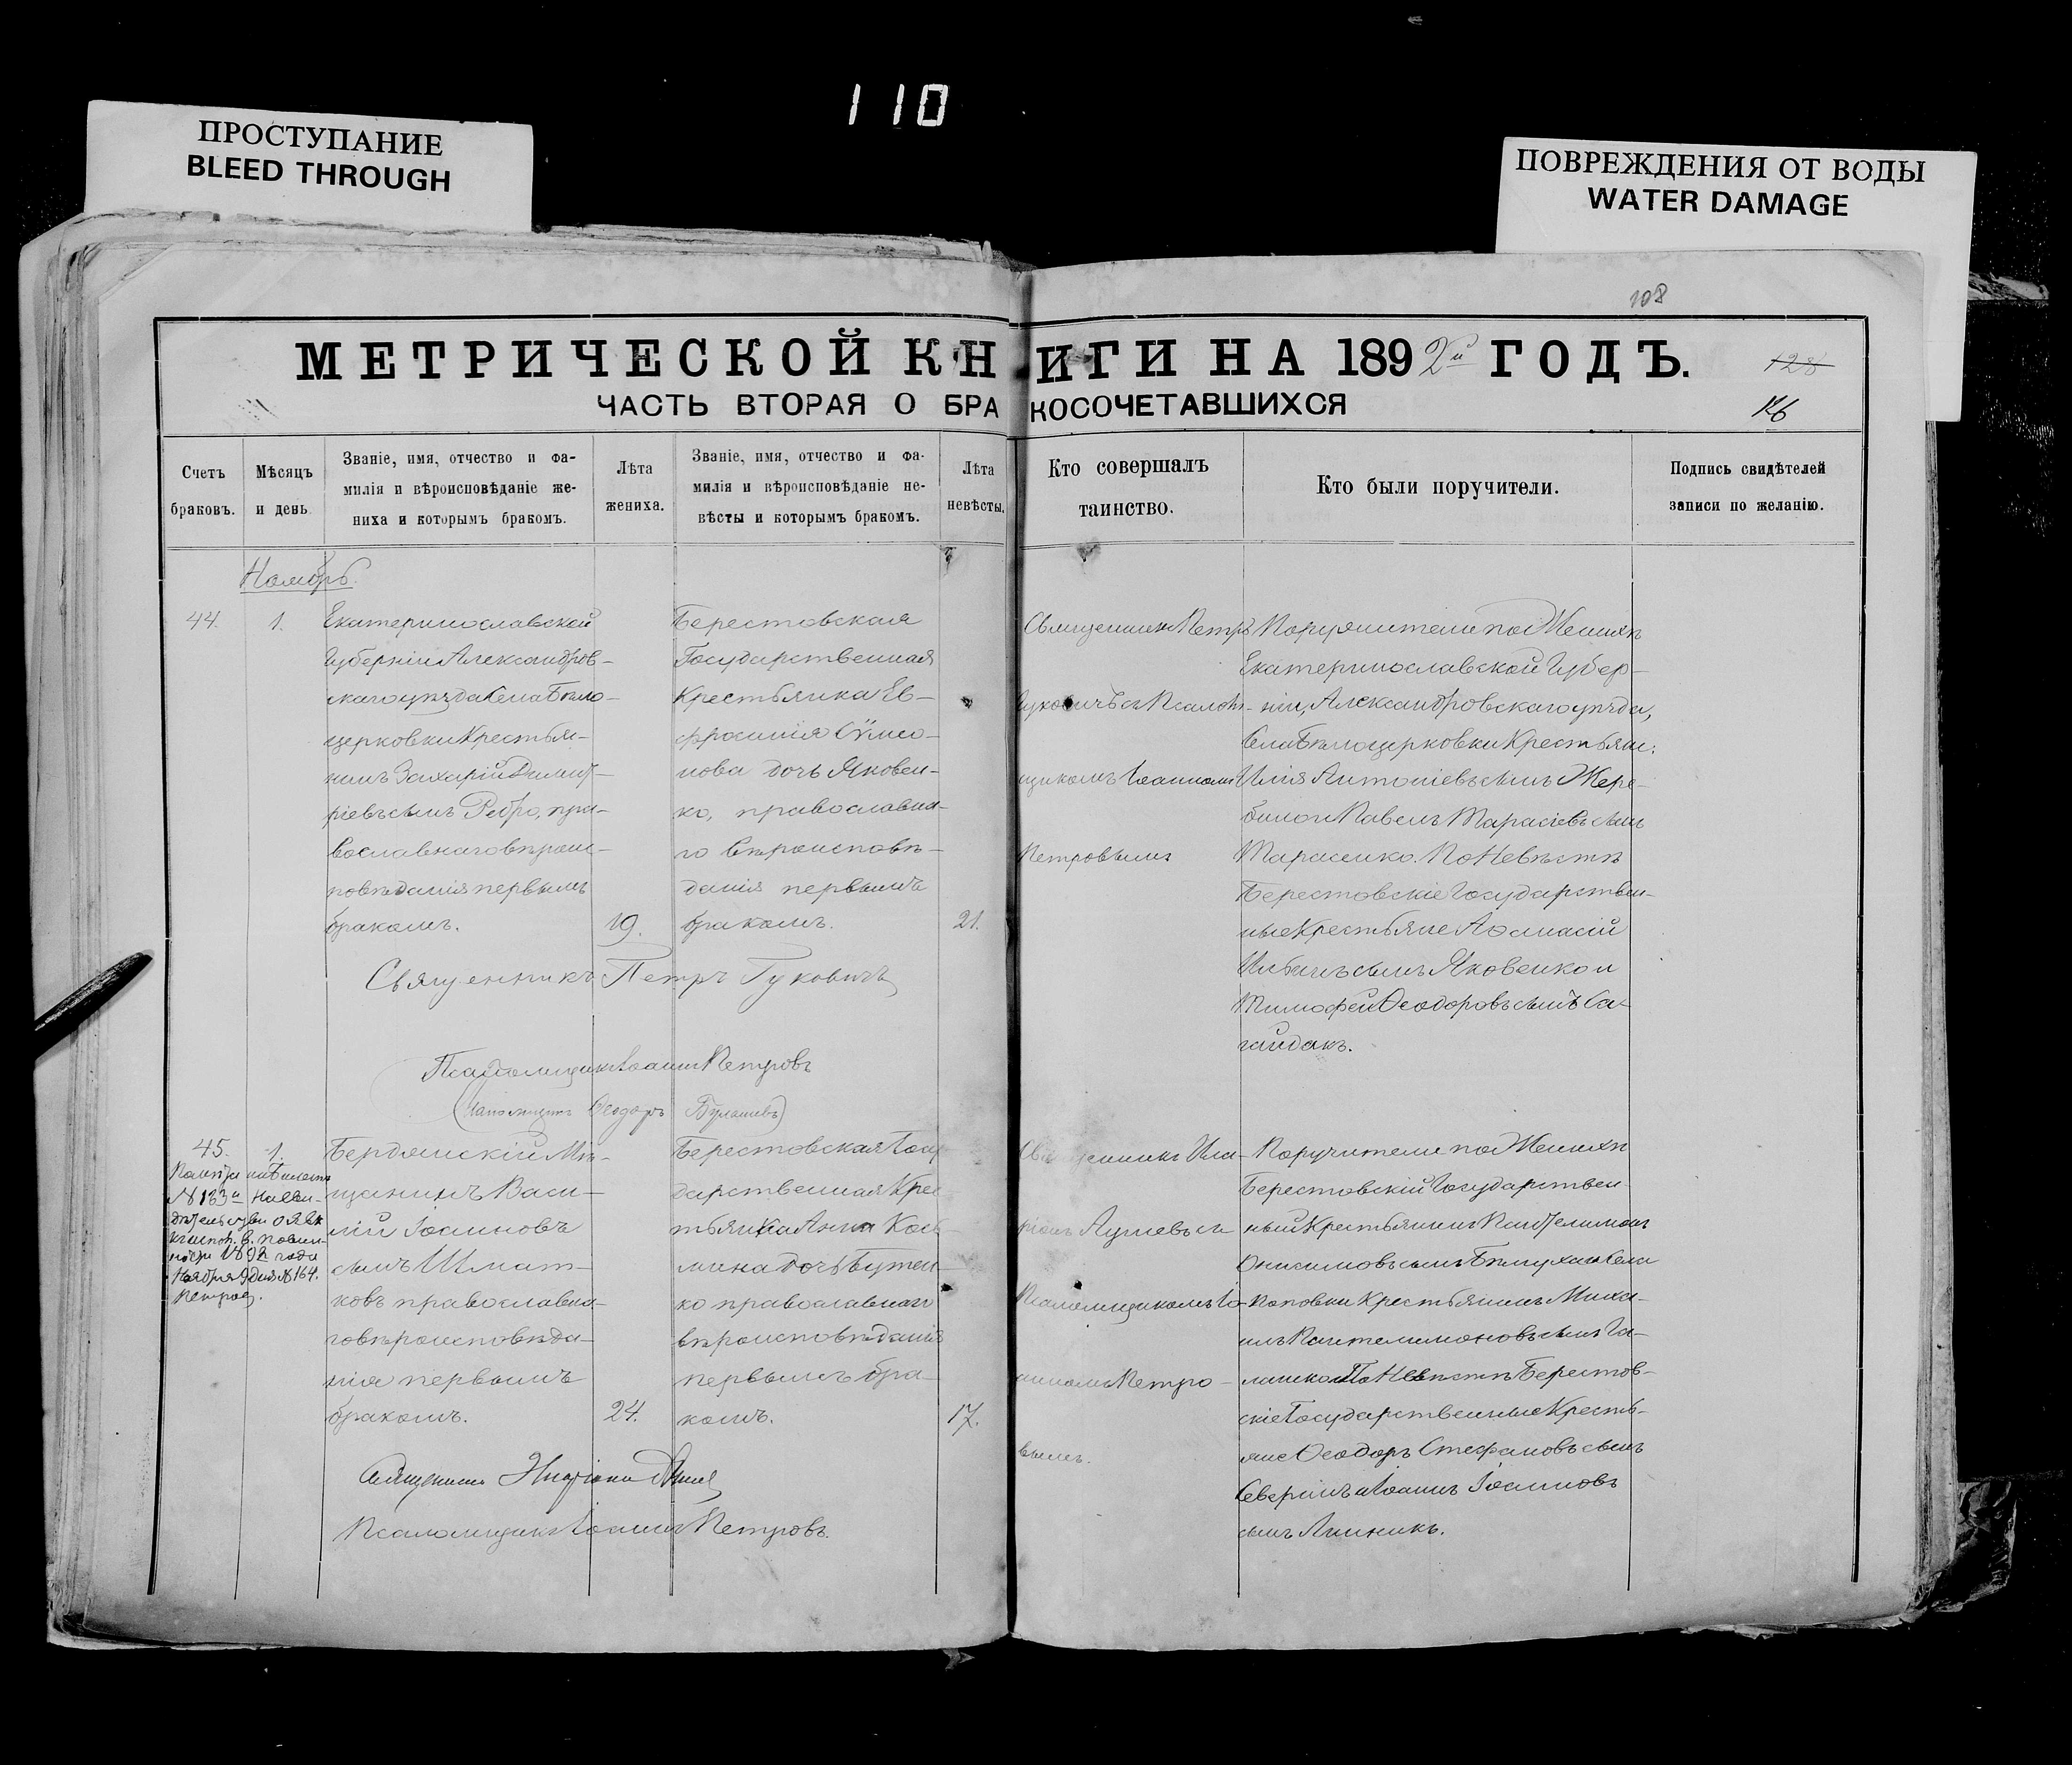 110
ПРОСТУПАНИЕ
BLEED THROUGH
ПОВРЕЖДЕНИЯ ОТ ВОДЫ
WATER DAMAGE
108
МЕТРИЧЕСКОЙ КНИГИ НА 1892й ГОДЪ.
128
ЧАСТЬ ВТОРАЯ О БРАКОСОЧЕТАВШИХСЯ
Счетъ
браковъ.
Мѣсяцъ
и день
Званіе, имя, отчество и фа-
милія и вѣроисповѣданіе же-
ниха и которымъ бракомъ.
Лѣта
жениха.
Званіе, имя, отчество и фа-
милія и вѣроисповѣданіе не-
вѣсты и которымъ бракомъ.
Лѣта
невѣсты.
Кто совершалъ
таинство.
Кто были поручители.
Подпись свидѣтелей
записи по желанію.
Ноябрь.
44.
1.
Екатеринославской
Губерніи Александров-
скаго уѣзда Села Бѣло-
церковки Крестья-
нинъ Захарій Димит-
ріевъ сынъ Ребро, пра-
вославнаго вѣроис-
повѣданія первымъ
бракомъ.
19.
Берестовская
Государственная
Крестьянка Ев-
фросинія Сѵмео-
нова дочь Яковен-
ко, православна-
го вѣроисповѣ-
данія первымъ
бракомъ.
21.
Священникъ Петръ
Гуковичъ съ Псалом-
щикомъ Іоанномъ
Петровымъ
Поручители по Женихѣ
Екатеринославской Губер-
ніи, Александровскаго уѣзда,
Села Бѣлоцерковки Крестьяне:
Илія Антоніевъ сынъ Жере-
било и Павелъ Тарасіевъ сынъ
Тарасенко. По Невѣстѣ
Берестовскіе Государствен-
ные Крестьяне Аѳанасій
сынъ Яковенко и
Тимофей Ѳеодоровъ сынъ Са-
гайдакъ.
Священникъ Петръ Гуковичъ
Псаломщикъ Іоаннъ Петровъ
Ѳеодоръ
45.
1.
№ 133й
1892 года
Ноября 9 дня № 164.
Петровъ.
Бердянскій Мѣ-
щанинъ Васи-
лій Іоанновъ
сынъ Шмат-
ковъ православна-
го вѣроисповѣда-
нія первымъ
бракомъ.
24.
Берестовская Госу
дарственная Крес
тьянка Анна Косъ
мина дочь Бутен-
ко православнаго
вѣроисповѣданія
первымъ бра-
комъ.
17.
Священникъ Ила-
ріонъ съ
Псаломщикомъ Іо-
анномъ Петро-
вымъ.
Поручители по Женихѣ
Берестовскій Государствен-
ный Крестьянинъ Пантелимонъ
Онисимовъ сынъ Села
Поповки Крестьянинъ Миха-
илъ Пантелимоновъ сынъ Га-
По Невѣстѣ Берестов-
скіе Государственные Кресть-
яне Ѳеодоръ Стефановъ сынъ
Северинъ и Іоаннъ Іоанновъ
сынъ Линникъ.
Священникъ
Псаломщикъ Іоаннъ Петровъ.